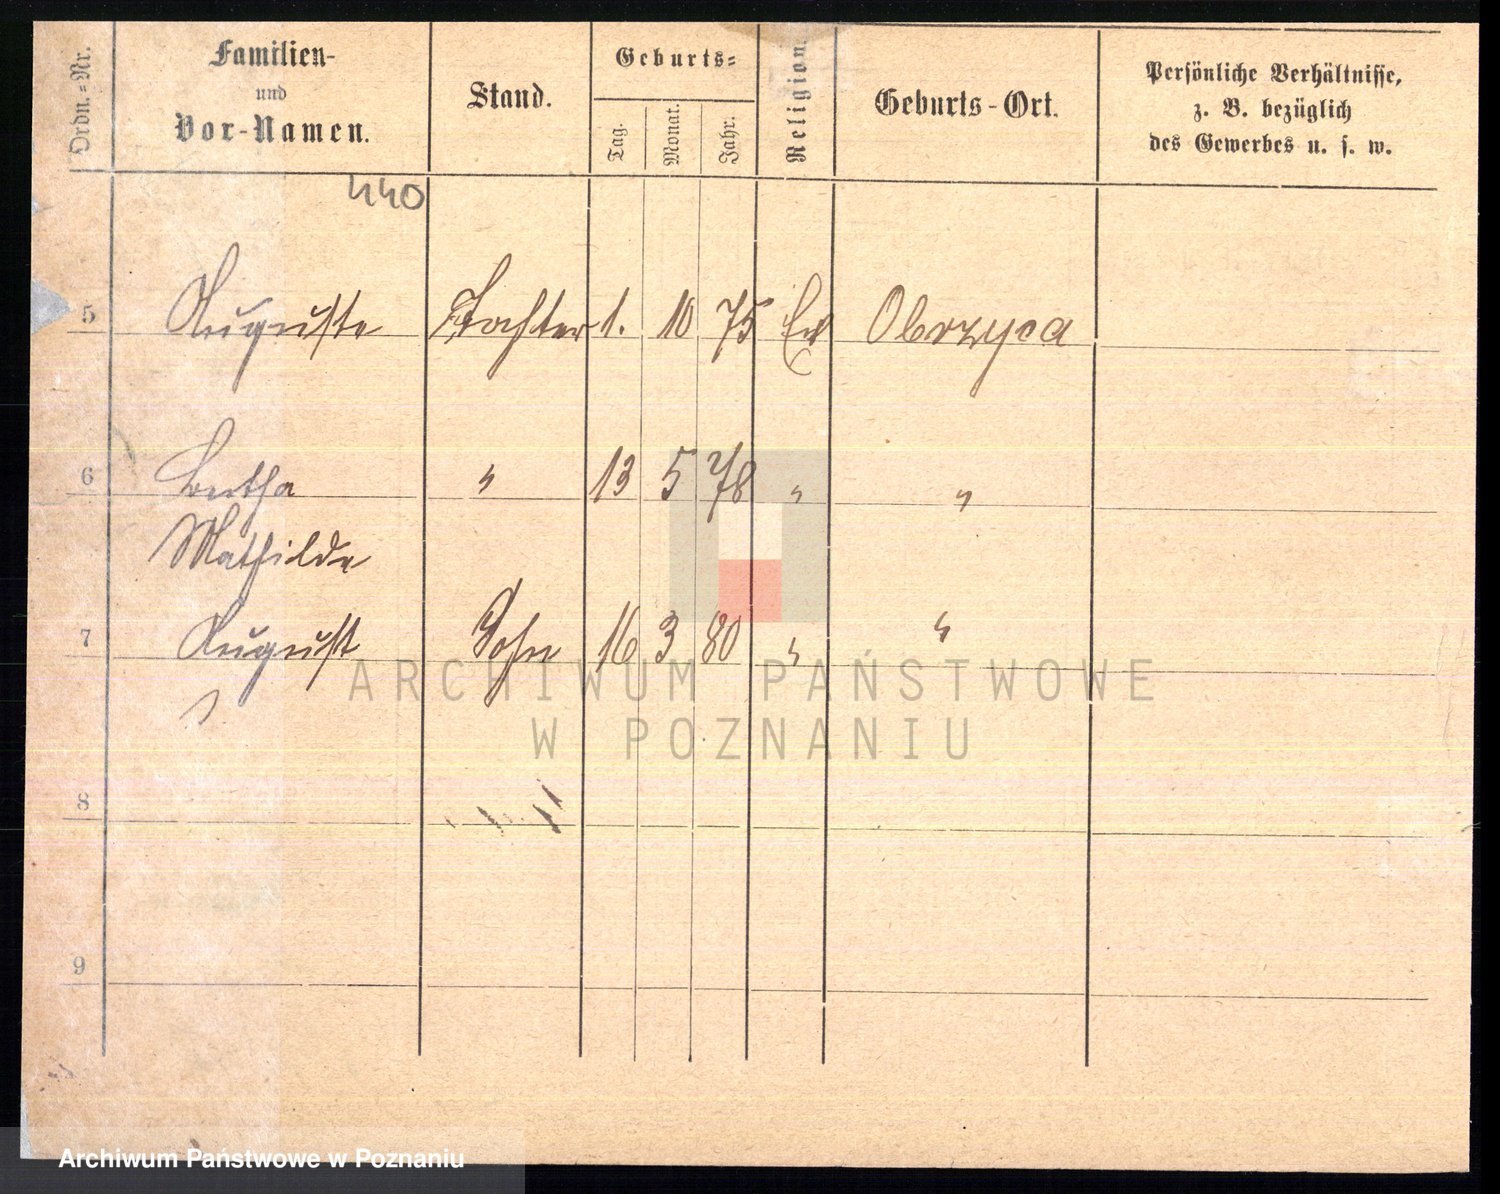 Ordn.-Nr.
Familien-
und
Vor-Namen.
Stand.
Geburts-
Tag.
Monat.
Jahr.
Religion.
Geburts-Ort.
Persönliche Verhältnisse,
z. B. bezüglich
des Gewerbes u. s. w.
440
5 Auguste Tochter 1. 10 75 Ev Obrzyca
6 Bertha " 13 5 78 " "
Mathilde
7 August Sohn 16 3 80 " "
8
9
ARCHIWUM PAŃSTWOWE
W POZNANIU
Archiwum Państwowe w Poznaniu